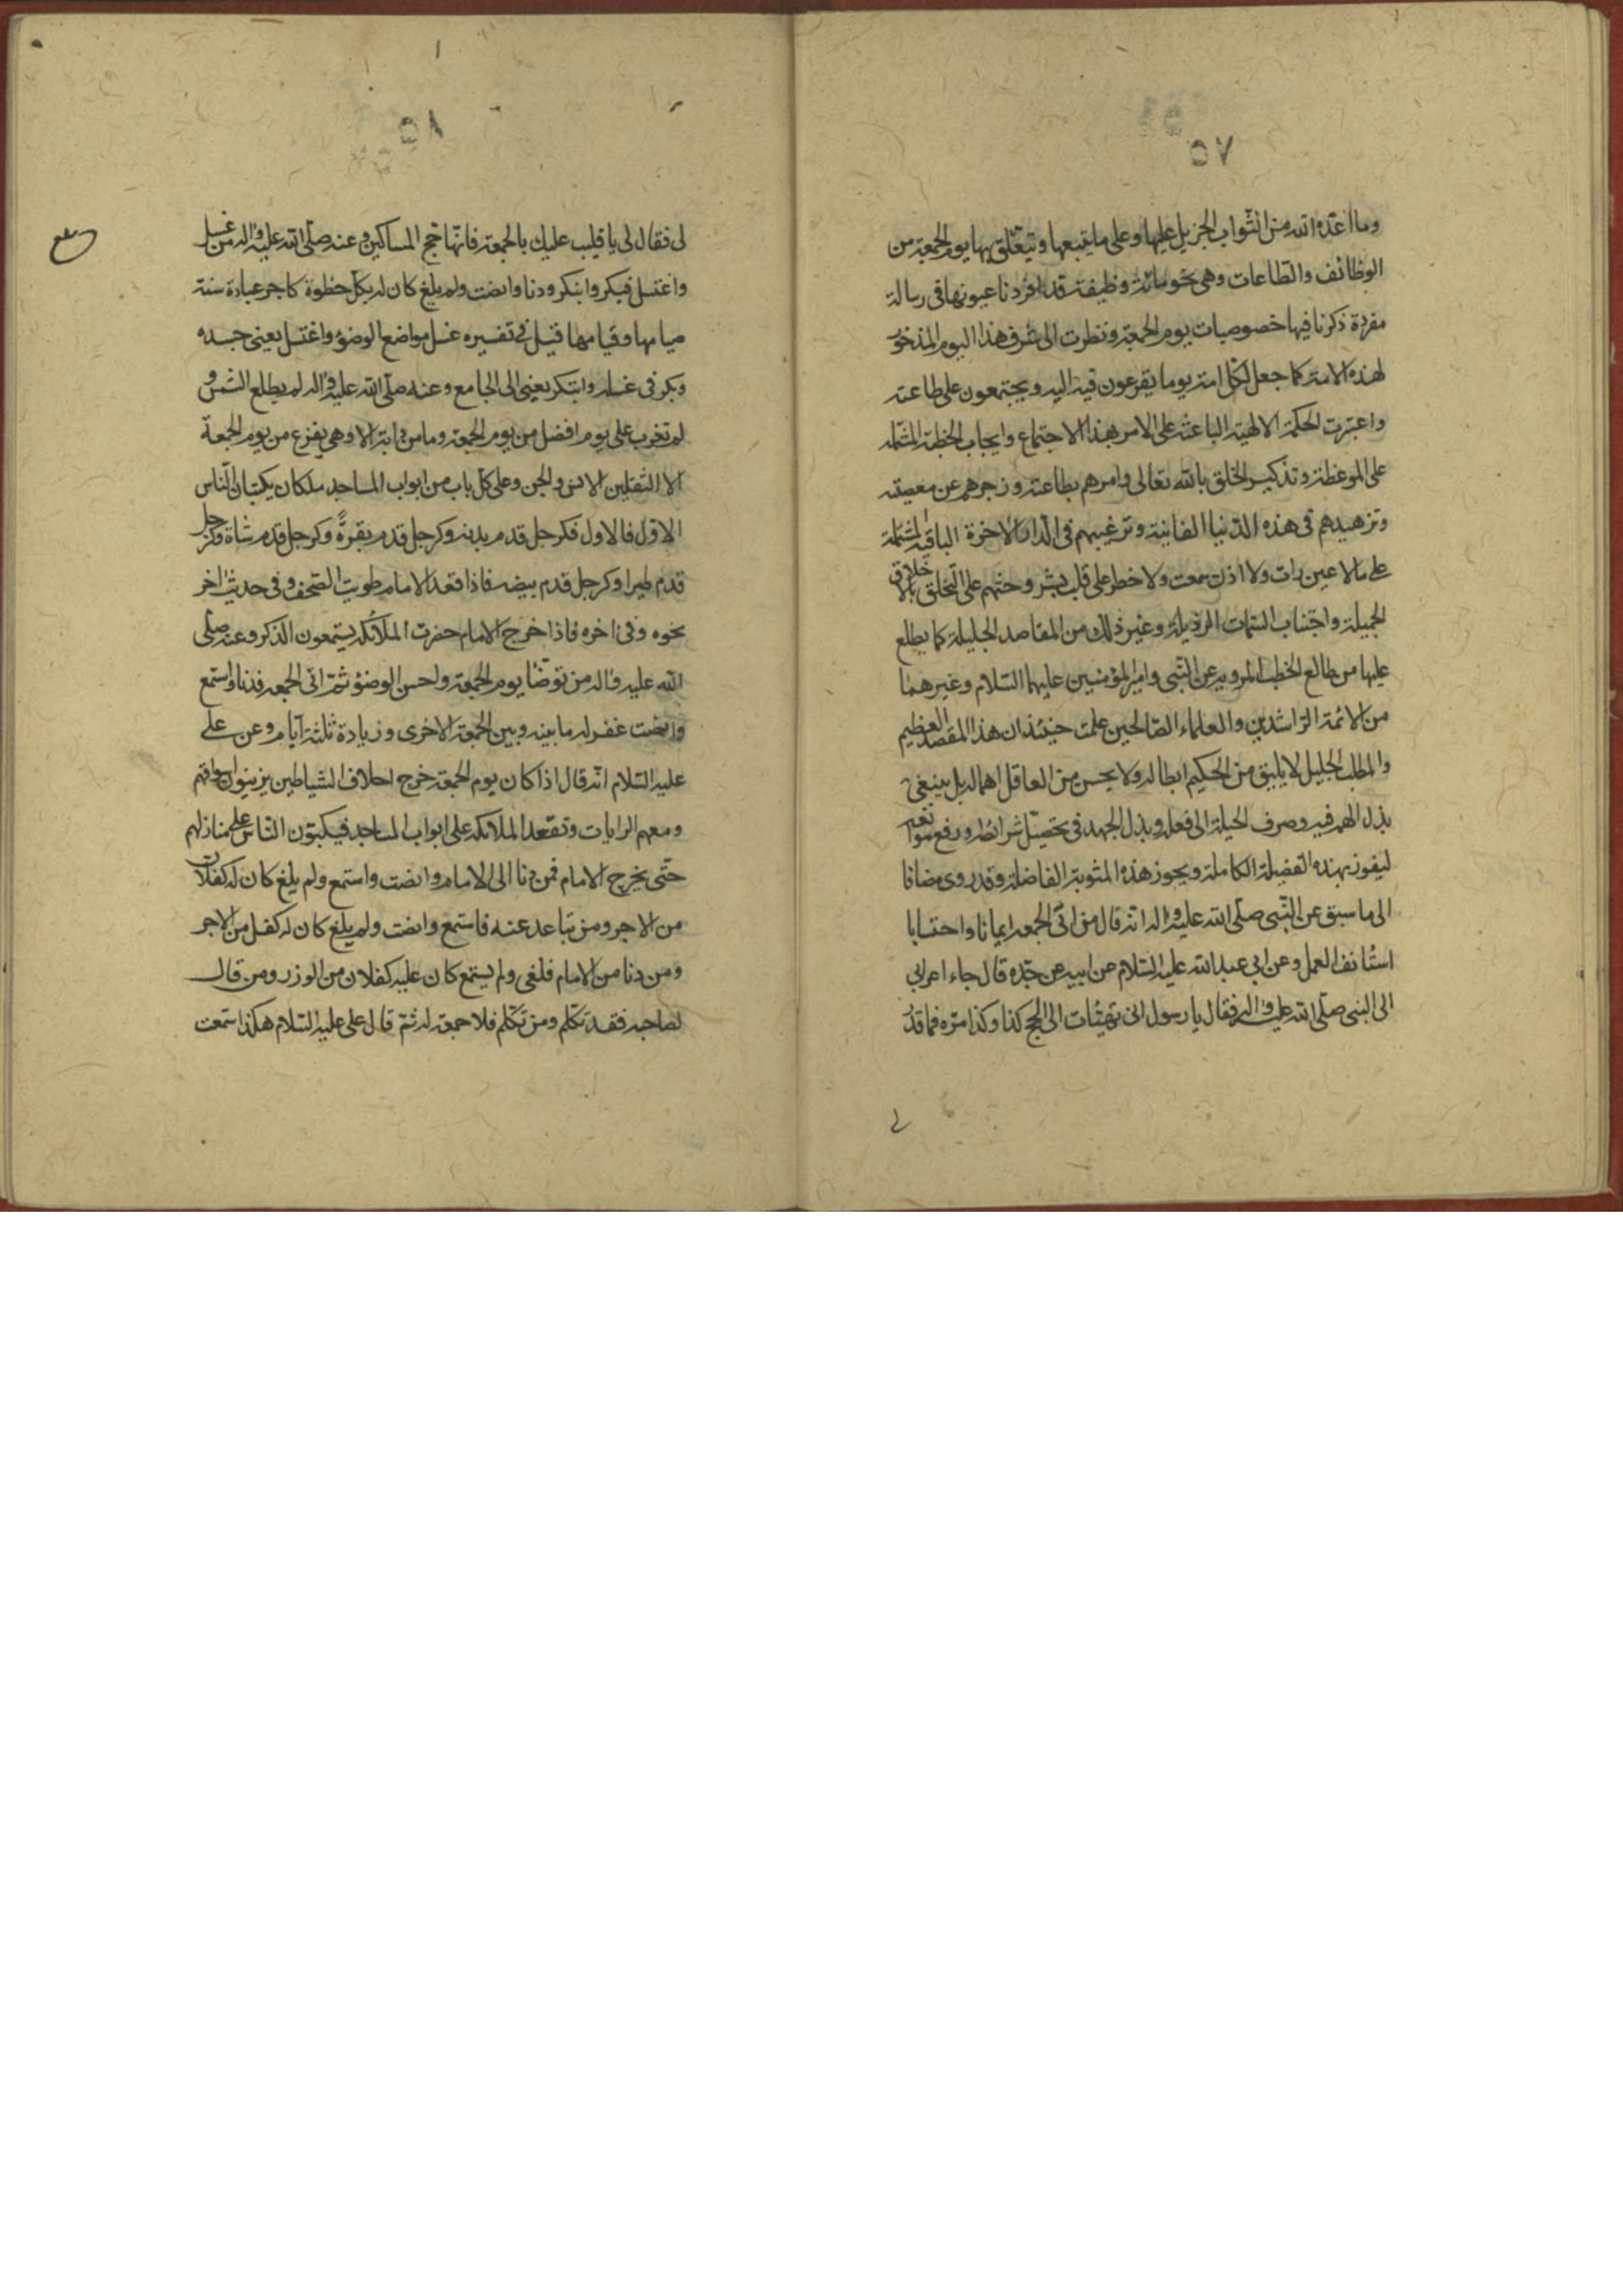 ٥٧
وما اعدّه الله من الثواب الجزيل عليها وعلى ما يتبعها ويتعلّق بها يوم الجمعة من
الوظائف والطاعات وهى نحو مائة وظيفة قد افردنا عيونها فى رسالة
مفردة ذكرنا فيها خصوصيات يوم الجمعة ونظرت الى شرف هذا اليوم المذخور
لهذه الامة كما جعل لكل امة يوما يفزعون فيه اليه ويجتمعون على طاعته
واعتبرت الحكمة الالهية الباعثة على الامر بهذا الاجتماع وايجاب الخطبة المشتملة
على الموعظة وتذكير الخلق بالله تعالى وامرهم بطاعته وزجرهم عن معصيته
وتزهيدهم فى هذه الدّنيا الفانية وترغيبهم فى الدار الاخرة الباقية المشتملة
على ما لا عين رات ولا اذن سمعت ولا خطر على قلب بشر وحثهم على التخلق بالاخلاق
الجميلة واجتناب السّمات الرذيلة وغير ذلك من المقاصد الجليلة كما يطلع
عليها من طالع الخطب المروية عن النّبى وامير المؤمنين عليهما السّلام وغيرهما
من الائمة الراشدين والعلماء الصّالحين علمت حينئذ ان هذا المقصد العظيم
والمطلب الجليل لا يليق من الحكيم ابطاله ولا يحسن من العاقل اهماله بل ينبغى
بذل الهمة فيه وصرف الحيلة الى فعله وبذل الجهد فى تحصيل شرائطه ورفع موانعه
ليفوز بهذه الفضيلة الكاملة ويحوز هذه المثوبة الفاضلة وقد روى مضافا
الى ما سبق عن النّبى صلّى الله عليه واله انه قال من اتى الجمعه ايمانا واحتسابا
استأنف العمل وعن ابى عبد الله عليه السّلام عن ابيه عن جدّه قال جاء اعرابى
الى النبى صلّى الله عليه واله فقال يا رسول انى تهيئات الى الحج كذا وكذا مرّه فما قدّر
لى
٥٨
لى فقال لى يا قليب عليك بالجمعة فانّها حج المساكين وعنه صلّى الله عليه واله من غسل
واغتسل فبكر وابتكر ودنا وانصت ولم يلغ كان له بكل خطوة كاجر عبادة سنة
صيامها وقيامها قيل فى تفسيره غسل مواضع الوضوء واغتسل يعنى جسده
وبكر فى غسله وابتكر يعنى الى الجامع وعنه صلّى الله عليه واله لم يطلع الشمس و
لم تغرب على يوم افضل من يوم الجمعة وما من دابة الا وهى يفزع من يوم الجمعة
الا الثقلين الانس والجن وعلى كل باب من ابواب المساجد ملكان يكتبان النّاس
الاوّل فالاول فكرجل قدم بدنة وكرجل قدم بقرةً وكرجل قدم شاة وكرجل
قدم طيرا وكرجل قدم بيضه فاذا قعد الامام طويت الصّحف وفى حديث اخر
نحوه وفى اخره فاذا خرج الامام حضرت الملائكه يستمعون الذكر وعنه صلّى
الله عليه واله من توضّا يوم الجمعة ولحسن الوضوء ثم اتى الجمعه فدنا واستمع
وانصت غفر له ما بينه وبين الجمعة الاخرى وزيادة ثلثة ايّام وعن على
عليه السّلام انّه قال اذا كان يوم الجمعة خرج احلاف الشياطين يزينون اسواقهم
ومعهم الرايات وتقعد الملائكه على ابواب المساجد فيكبتون النّاس على منازلهم
حتّى يخرج الامام فمن دنا الى الامام وانصت واستمع ولم يلغ كان له كفلان
من الاجر ومن تباعد عنه فاستمع وانصت ولم يلغ كان له كفل من الاجر
ومن دنا من الامام فلغى ولم يستمع كان عليه كفلان من الوزر ومن قال
لصاحبه فقد تكلّم ومن تكلّم فلا جمعة له ثمّ قال على عليه السّلام هكذا سمعت